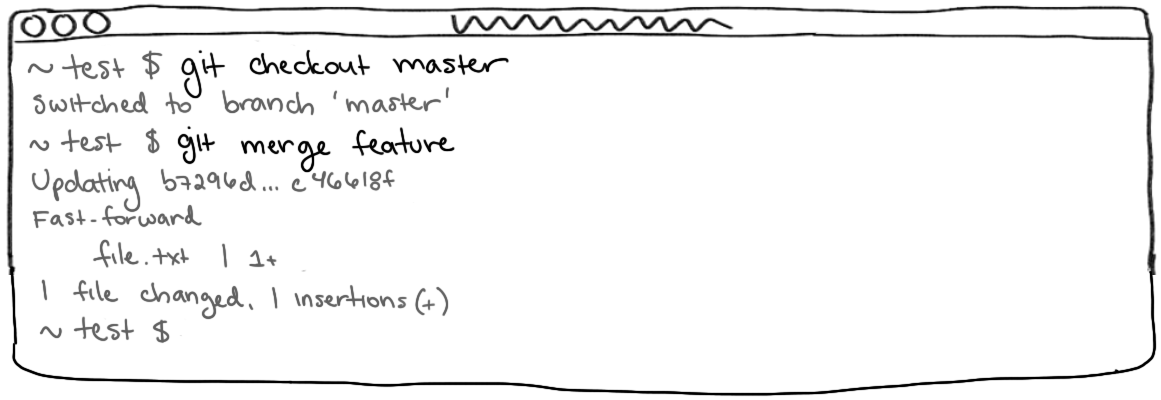 ~ test $ git checkout master
Switched to branch 'master'
~ test $ git merge feature
Updating b7296d... c46618f
Fast-forward
file.txt | 1+
1 file changed, 1 insertions (+)
~ test $